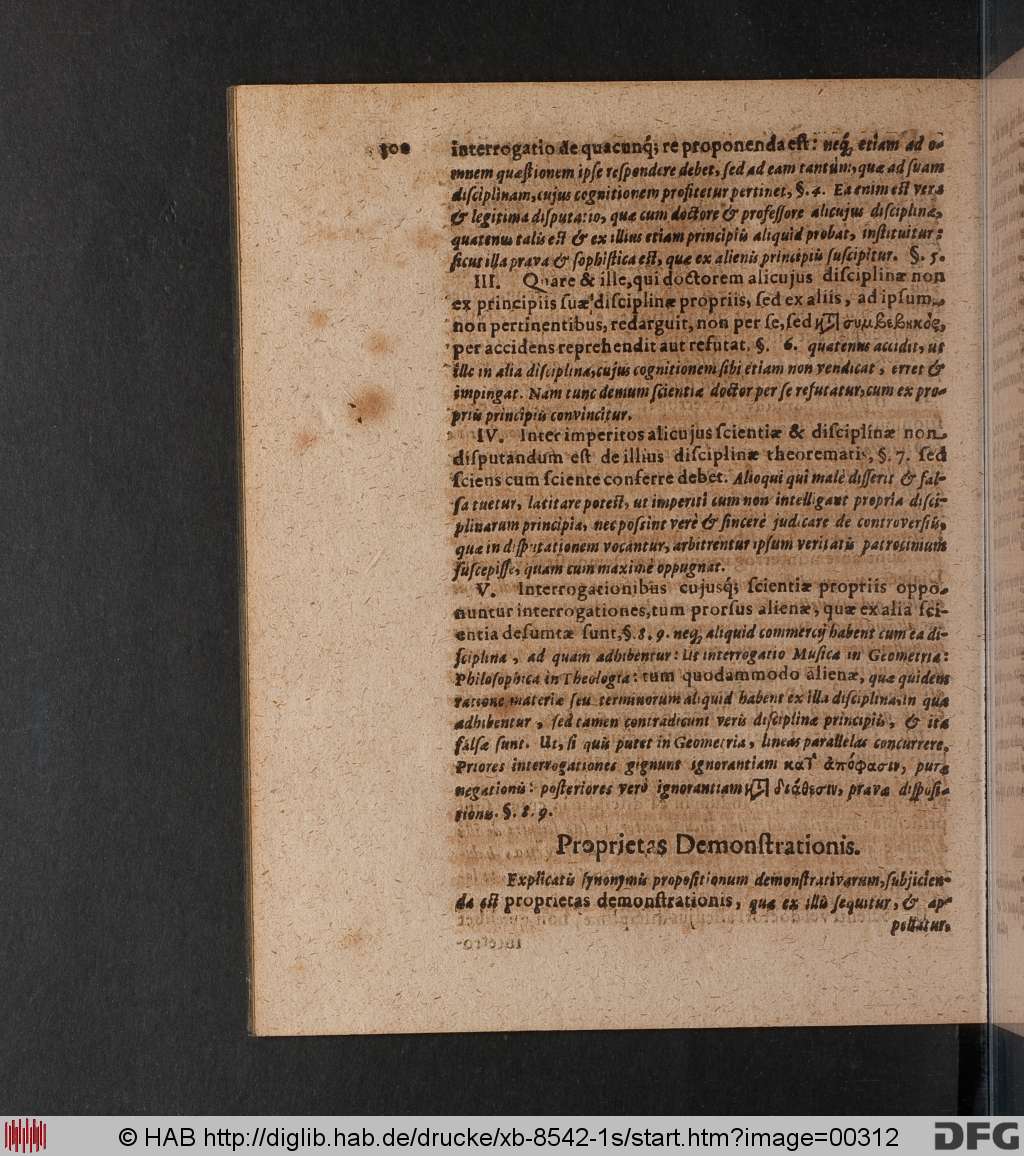 300
interrogatio de quacunq́; re proponenda est: neq́; etiam ad o-
mnem quæstionem ipse respondere debet, sed ad eam tantùm, quæ ad suam
disciplinam, cujus cognitionem profitetur pertinet, §. 4. Ea enim est vera
& legitima disputatio, quæ cum doctore & professore alicujus disciplinæ,
quatenus talis est & ex illius etiam principiis aliquid probat, instituitur:
sicut illa prava & sophistica est, quæ ex alienis principiis suscipitur. §. 5.
III. Quare & ille, qui doctorem alicujus disciplinæ non
ex principiis suæ disciplinæ propriis, sed ex aliis, ad ipsum
non pertinentibus, redarguit, non per se, sed κατὰ συμβεβηκὸς,
per accidens reprehendit aut refutat. §. 6. quatenus accidit, ut
ille in alia disciplina, cujus cognitionem sibi etiam non vendicat, erret &
impingat. Nam tunc demum scientiæ doctor per se refutatur, cum ex pro-
priis principiis convincitur.
IV. Inter imperitos alicujus scientiæ & disciplinæ non
disputandum est de illius disciplinæ theorematis, §. 7. sed
sciens cum sciente conferre debet. Alioqui qui malè disserit & fal-
sa tuetur, latitare potest, ut imperiti cum non intelligant propria disci-
plinarum principia, nec possint verè & sincerè judicare de controversiis,
quæ in disputationem vocantur, arbitrentur ipsum veritatis patrocinium
suscepisse, quam cum maximè oppugnat.
V. Interrogationibus cujusq́; scientiæ propriis oppo-
nuntur interrogationes, tum prorsus alienæ, quæ ex alia sci-
entia desumtæ sunt, §. 8. 9. neq́; aliquid commercij habent cum ea di-
sciplina, ad quam adhibentur: Ut interrogatio Musica in Geometria:
Philosophica in Theologia: tum quodammodo alienæ, quæ quidem
ratione materiæ seu terminorum aliquid habent ex illa disciplina, in qua
adhibentur, sed tamen contradicunt veris disciplinæ principiis, & ita
falsæ sunt. Ut, si quis putet in Geometria, lineas parallelas concurrere.
Priores interrogationes gignunt ignorantiam κατ᾽ ἀπόφασιν, puræ
negationis: posteriores verò ignorantiam κατὰ διάθεσιν, prava disposi-
tionis. §. 8. 9.
Proprietas Demonstrationis.
Explicatis synonymis propositionum demonstrativarum, subjicien-
da est proprietas demonstrationis, quæ ex illis sequitur, & ap-
pellatur.
© HAB http://diglib.hab.de/drucke/xb-8542-1s/start.htm?image=00312
DFG